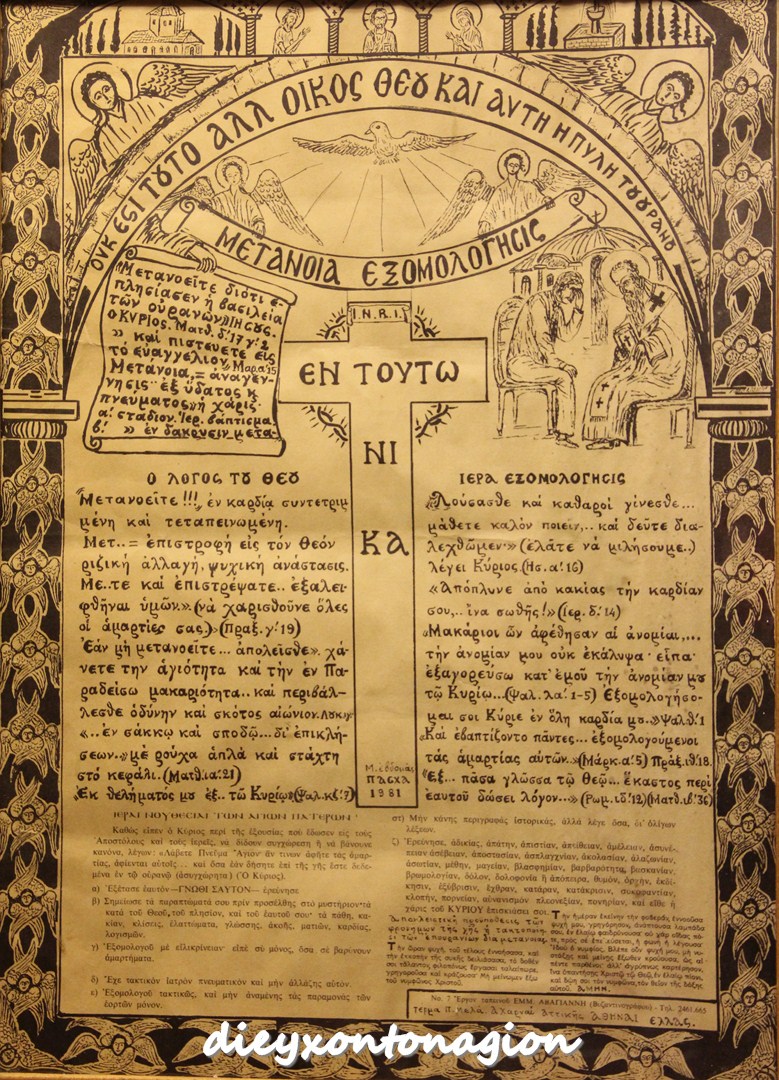 ΟΥΚ ΕϚΙ ΤΟΥΤΟ ΑΛΛ ΟΙΚΟϹ ΘΕΟΥ ΚΑΙ ΑΥΤΗ Η ΠΥΛΗ ΤΟΥ ΟΥΡΑΝΟΥ
ΜΕΤΑΝΟΙΑ ΕΞΟΜΟΛΟΓΗϹΙϹ
"Μετανοεῖτε διότι ἐ-
πλησίασεν ἡ βασιλεία
τῶν οὐρανῶν» ΙΗϹΟΥϹ.
Ο ΚΥΡΙΟϹ. Ματθ. δ'. 17 γ'. 2
» καί πιστεύετε εἰς
τό εὐαγγέλιον» Μαρ. α' 15
Μετάνοια = ἀναγέν-
νησις·· ἐξ ὕδατος κ
πνεύματος» ἡ χάρις·
α'. στάδιον. Ἱερ. βάπτισμα
β'. » ἐν δακρυειν μετα-
I.N.R.I.
ΕΝ ΤΟΥΤΩ
ΝΙ
ΚΑ
Ο ΛΟΓΟϹ ΤΟΥ ΘΕΟΥ
"Μετανοεῖτε!!!" ἐν καρδίᾳ συντετριμ
μένη καί τεταπεινωμένη.
Μετ..= ἐπιστροφή εἰς τόν Θεόν
ριζική ἀλλαγή, ψυχική ἀνάστασις.
Με..τε καί ἐπιστρέψατε.. ἐξαλει-
φθῆναι ὑμῶν..» (νά χαρισθοῦνε ὅλες
οἱ ἁμαρτίες σας.)» (Πραξ. γ'. 19)
"Ἐάν μή μετανοεῖτε... ἀπολεῖσθε». χά-
νετε τήν ἁγιότητα καί τήν ἐν Πα-
ραδείσω μακαριότητα.. καί περιβάλ-
λεσθε ὀδύνην καί σκότος αἰώνιον. Λουκ.
«..ἐν σάκκῳ καί σποδῷ... δι' ἐπικλή-
σεων..» μέ ροῦχα ἁπλᾶ καί στάχτη
στό κεφάλι. (Ματθ. ια'. 21)
"Ἐκ θελήματός μου ἐξ.. τῶ Κυρίω» (Ψαλ. κζ'. 7)
ΙΕΡΑ ΕΞΟΜΟΛΟΓΗϹΙϹ
«Λούσασθε καί καθαροί γίνεσθε...
μάθετε καλόν ποιεῖν,.. καί δεῦτε δια-
λεχθῶμεν·» (ἐλᾶτε νά μιλήσουμε..)
λέγει Κύριος. (Ησ. α'. 16)
«Ἀπόπλυνε ἀπό κακίας τήν καρδίαν
σου,.. ἵνα σωθῆς!» (Ιερ. δ'. 14)
«Μακάριοι ὧν ἀφέθησαν αἱ ἀνομίαι,...
τήν ἀνομίαν μου οὐκ ἐκάλυψα· εἶπα·
ἐξαγορεύσω κατ' ἐμοῦ τήν ἀνομίαν μου
τῷ Κυρίῳ... (Ψαλ. λα'. 1-5) Ἐξομολογήσο-
μαι σοι Κύριε ἐν ὅλη καρδία μου..» Ψαλ. θ'. 1
«Καί ἐβαπτίζοντο πάντες... ἐξομολογούμενοι
τάς ἁμαρτίας αὐτῶν..» (Μάρκ. α'. 5) Πράξ. ιθ'. 18.
"Ἐξ... πᾶσα γλῶσσα τῷ Θεῷ... ἕκαστος περί
ἑαυτοῦ δώσει λόγον...» (Ρωμ. ιδ'. 12) (Ματθ. ιβ'. 36)
ΠΑϹΧΑ
1981
ΙΕΡΑΙ ΝΟΥΘΕΣΙΑΙ ΤΩΝ ΑΓΙΩΝ ΠΑΤΕΡΩΝ
Καθώς εἶπεν ὁ Κύριος περί τῆς ἐξουσίας πού ἔδωσεν εἰς τούς
Ἀποστόλους καί τούς ἱερεῖς, νά δίδουν συγχώρεση ἤ νά βάνουνε
κανόνα, λέγων: «Λάβετε Πνεῦμα Ἅγιον· ἄν τινων ἀφῆτε τάς ἁμαρ-
τίας, ἀφίενται αὐτοῖς... καί ὅσα ἐάν δήσητε ἐπί τῆς γῆς ἔσται δεδε-
μένα ἐν τῷ οὐρανῷ (ἀσυγχώρητα) (Ὁ Κύριος).
α) Ἐξέτασε ἑαυτόν—ΓΝΩΘΙ ΣΑΥΤΟΝ— ἐρεύνησε
β) Σημείωσε τά παραπτώματά σου πρίν προσέλθης στό μυστήριον· τά
κατά τοῦ Θεοῦ, τοῦ πλησίον, καί τοῦ ἑαυτοῦ σου· τά πάθη, κα-
κίαν, κλίσεις, ἐλαττώματα, γλώσσης, ἀκοῆς, ματιῶν, καρδίας,
λογισμῶν.
γ) Ἐξομολογοῦ μέ εἰλικρίνειαν· εἰπέ σύ μόνος, ὅσα σέ βαρύνουν
ἁμαρτήματα.
δ) Ἔχε τακτικόν ἰατρόν πνευματικόν καί μήν ἀλλάζης αὐτόν.
ε) Ἐξομολογοῦ τακτικῶς, καί μήν ἀναμένης τάς παραμονάς τῶν
ἑορτῶν μόνον.
στ) Μήν κάνης περιγραφές ἱστορικάς, ἀλλά λέγε ὅσα, δι' ὀλίγων
λέξεων.
ζ) Ἐρεύνησε, ἀδικίας, ἀπάτην, ἀπιστίαν, ἀπείθειαν, ἀμέλειαν, ἀσυνέ-
πειαν ἀσέβειαν, ἀποστασίαν, ἀσπλαχνίαν, ἀκολασίαν, ἀλαζονίαν,
ἀσωτίαν, μέθην, μαγείαν, βλασφημίαν, βαρβαρότητα, βασκανίαν,
βρωμολογίαν, δόλον, δολοφονία ἤ ἀπόπειρα, θυμόν, ὀργήν, ἐκδί-
κησιν, ἐξύβρισιν, ἔχθραν, κατάραν, κατάκρισιν, συκοφαντίαν,
κλοπήν, πορνείαν, αὐνανισμόν, πλεονεξίαν, πονηρίαν, καί εἴθε ἡ
χάρις τοῦ ΚΥΡΙΟΥ ἐπισκιάσει σοι.
Τήν ὥραν ψυχή, τοῦ τέλους ἐννοήσασα, καί
τήν ἐκκοπήν τῆς συκῆς δειλιάσασα, τό δοθέν
σοι τάλαντον φιλοπόνως ἔργασαι ταλαίπωρε,
γρηγοροῦσα καί κράζουσα· Μή μείνωμεν ἔξω
τοῦ νυμφῶνος Χριστοῦ.
ΑΜΗΝ.
Νο. 7 Ἔργον ταπεινοῦ ΕΜΜ. ΑΒΑΓΙΑΝΝΗ (Βυζαντινογράφου) - Τηλ. 2461.665
ΑΘΗΝΑΙ ΕΛΛΑϹ.
dieyxontonagion